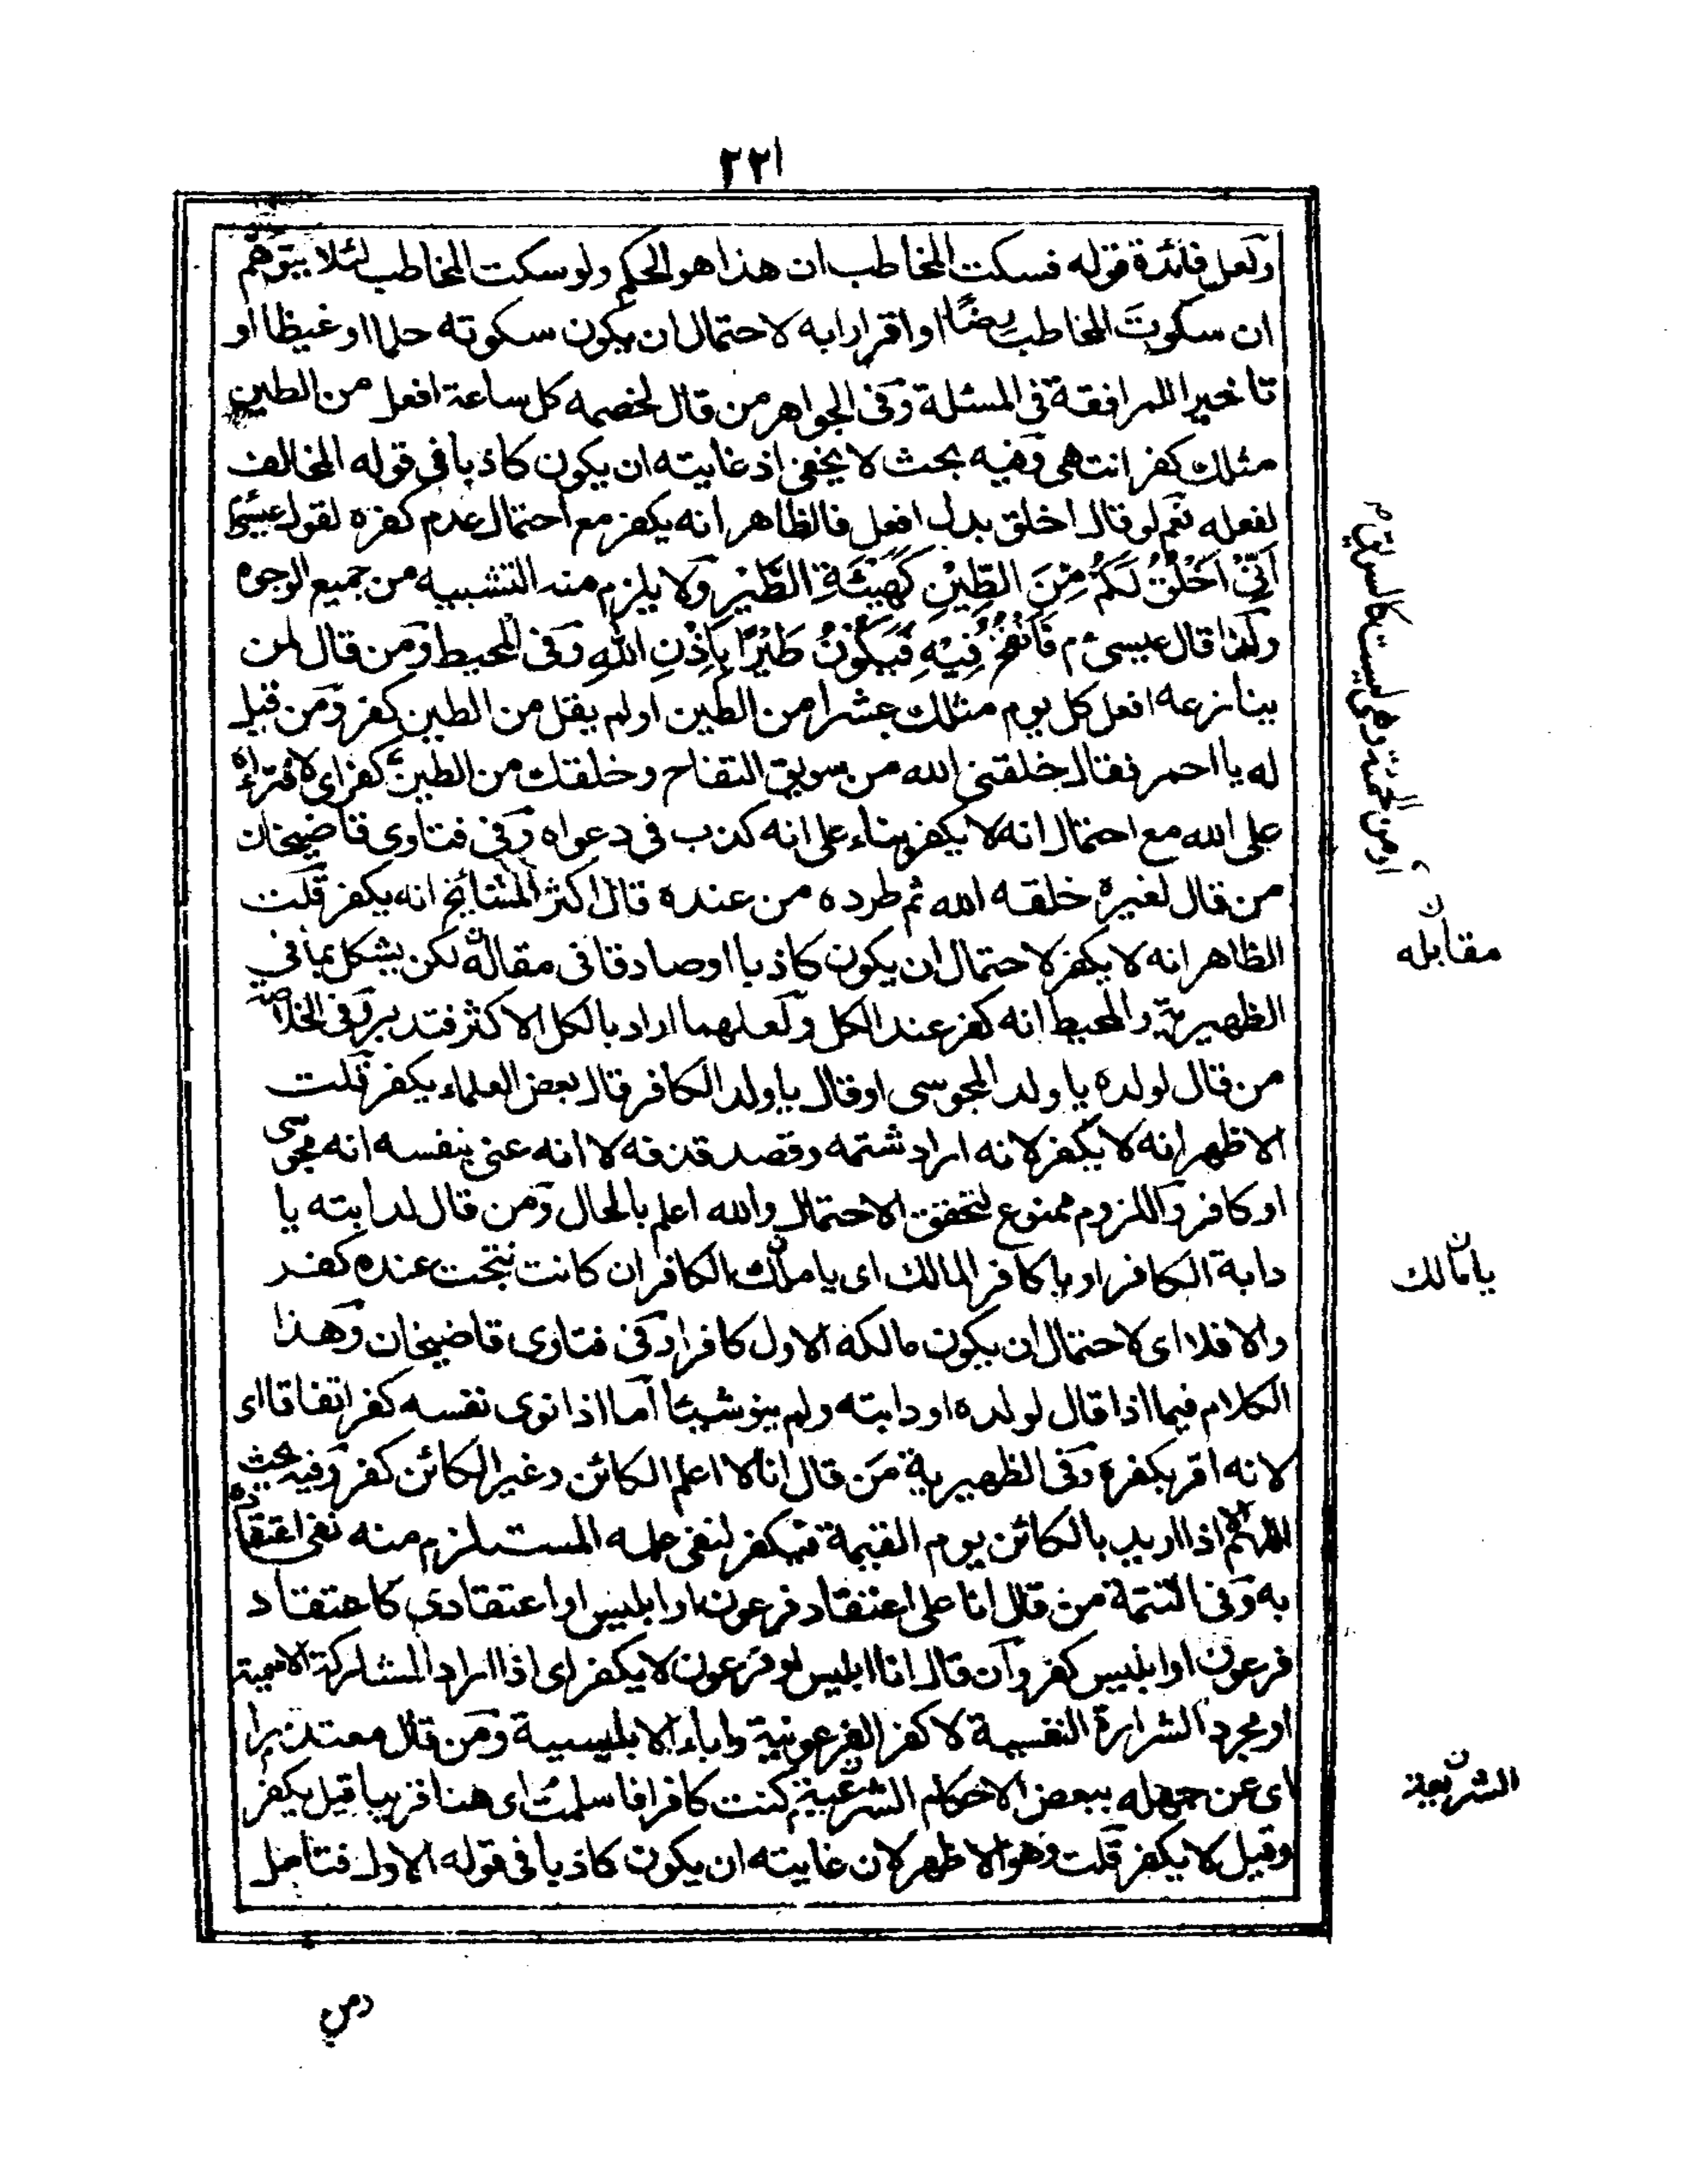 ٢٢١
ولعل فائدة قوله فسكت المخاطب ان هذا هو الحكم ولو سكت المخاطب لئلا يتوهم
ان سكوتَ المخاطبِ رِضًا او اقرارا به لاحتمال ان يكون سكوته حلما او غيظا او
تاخيرا للمرافقة في المسئلة وفى الجواهر من قال لخصمه كل ساعة افعل من الطين
مثلك كفر انتهى وفيه بحث لا يخفى اذ غايته ان يكون كاذبا فى قوله المخالف
لفعله نعم لو قال اخلق بدل افعل فالظاهر انه يكفر مع احتمال عدم كفره لقول عيسىٰ
اَنِّىْ اَخْلُقُ لَكُمْ مِّنَ الطِّيْنِ كَهَيْئَةِ الطَّيْرِ ولا يلزم منه التشبيه من جميع الوجوه
ولذا قال عيسىٰ م فَاَنْفُخُ فِيْهِ فَيَكُوْنُ طَيْرًا بِاِذْنِ اللهِ وفى المحيط ومن قال لمن
ينازعه افعل كل يوم مثلك عشرا من الطين او لم يقل من الطين كفر ومن قيل
له يا احمر فقال خلقنى الله من سويق التفاح وخلقك من الطين كفر اى لافترائه
على الله مع احتمال انه لا يكفر بناء على انه كذب فى دعواه وفى فتاوى قاضيخان
من قال لغيره خلقه الله ثم طرده من عنده قال اكثر المشائخ انه يكفر قلت
الظاهر انه لا يكفر لاحتمال ان يكون كاذبا او صادقا فى مقاله لكن يشكل بما في
الظهيرية والمحيط انه كفر عند الكل ولعلهما اراد بالكل الاكثر فتدبر وفى الخلاصة
من قال لولده يا ولد المجوسى او قال يا ولد الكافر قال بعض العلماء يكفر قلت
الاظهر انه لا يكفر لانه اراد شتمه وقصد قذفه لا انه عنى بنفسه انه مجوسى
او كافر واللزوم ممنوع لتحقق الاحتمال والله اعلم بالحال ومن قال لدابته يا
دابة الكافر او يا كافر المالك اى يا ملك الكافر ان كانت نتجت عنده كفر
والا فلا اى لاحتمال ان يكون مالكه الاول كافرا وفى فتاوى قاضيخان وهذا
الكلام فيما اذا قال لولده او دابته ولم ينو شيئا اما اذا نوى نفسه كفر اتفاقا اى
لانه اقر بكفره وفى الظهيرية من قال انا لا اعلم الكائن وغير الكائن كفر وفيه بحث
اللهم الا اذا اريد بالكائن يوم القيمة فيكفر لنفى علمه المستلزم منه نفى اعتقاده
به وفى التتمة من قال انا على اعتقاد فرعون او ابليس او اعتقادى كاعتقاد
فرعون او ابليس كفر وان قال انا ابليس او فرعون لا يكفر اى اذا اراد المشاركة الاسمية
او مجرد الشرارة النفسية لا كفر الفرعونية واباء الابليسية ومن قال معتذرا
اى عن جهله ببعض الاحكام الشرعية كنت كافرا فاسلمت اى هنا قريبا قيل يكفر
وقيل لا يكفر قلت وهو الاظهر لان غايته ان يكون كاذبا فى قوله الاول فتامل
او من
مقابله ن
يا مالك ن
الشريعة ن
ومن